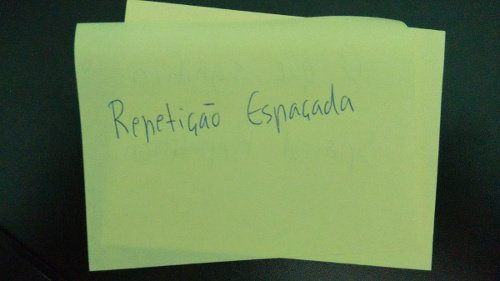 Repetição Espaçada